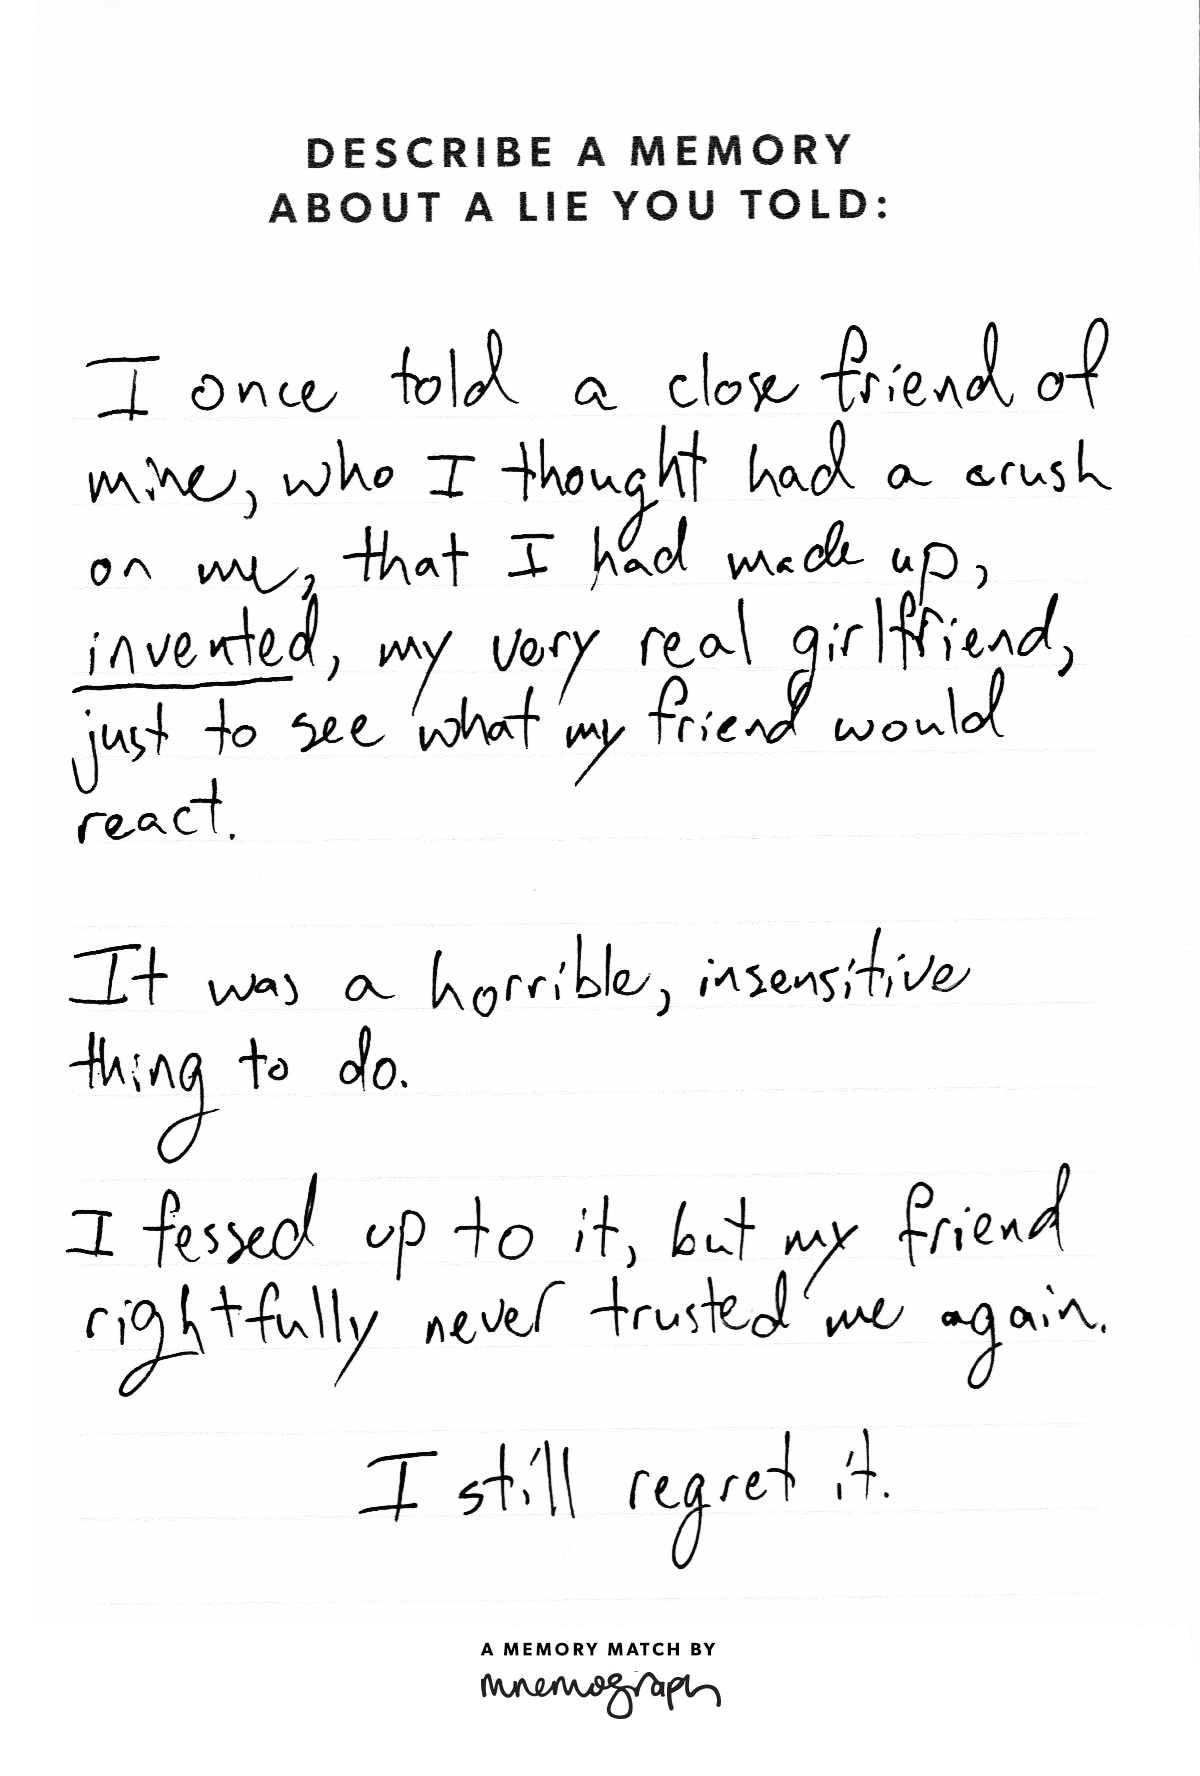 DESCRIBE A MEMORY
ABOUT A LIE YOU TOLD:
I once told a close friend of
mine, who I thought had a crush
on me, that I had made up,
invented, my very real girlfriend,
just to see what my friend would
react.
It was a horrible, insensitive
thing to do.
I fessed up to it, but my friend
rightfully never trusted me again.
I still regret it.
A MEMORY MATCH BY
mnemograph